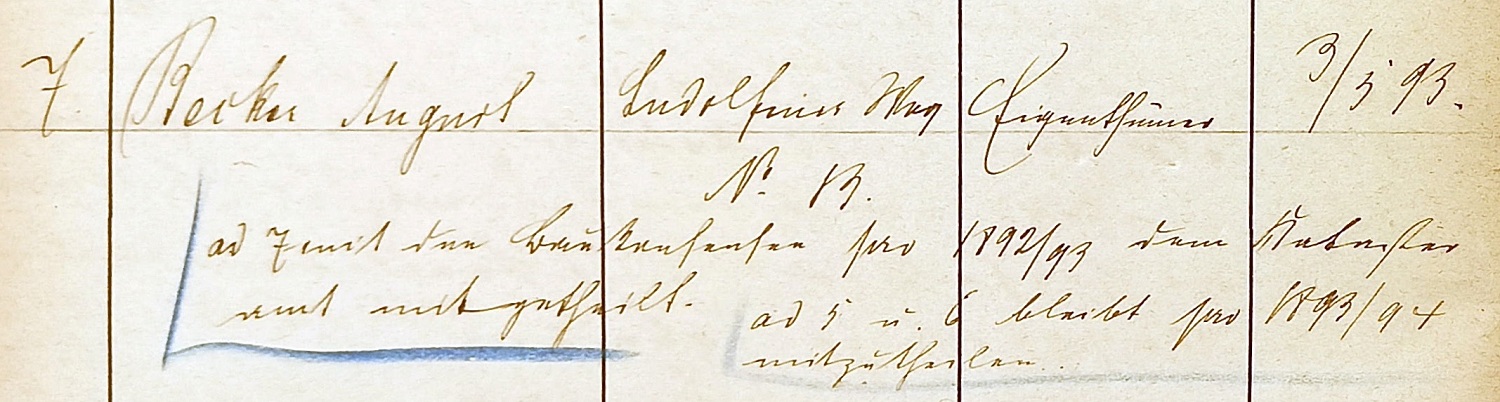 7. Becker August Ludolfiner Weg Eigenthümer 3/5 93.
No. 13.
ad 7 mit den Baukonsensen pro 1892/93 dem Kataster
amt mitgetheilt.
ad 5 u. 6 bleibt pro 1893/94
mitzutheilen.